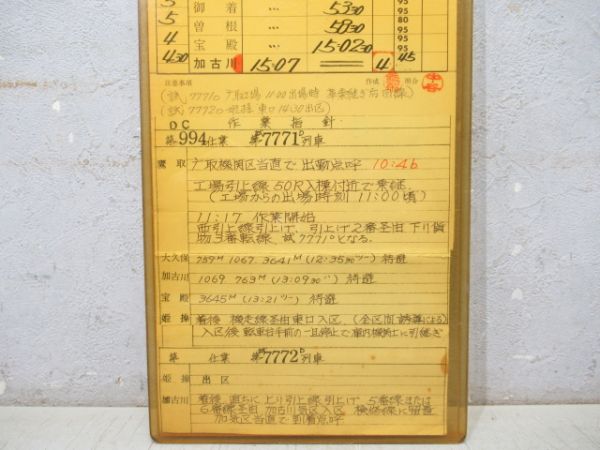 5 御着 〃 53 30 95
5 曽根 〃 58 30 80 95
4 宝殿 〃 15-02 30 95
4 30 加古川 15-07 4 45
注意事項 作成 照合
(試)7771D 11:00出場時
(試)7772D 東口 14:30出区
DC 作業指針
第994仕業 第試7771D列車
鷹取 取機関区当直で出勤点呼 10:46
工場引上線50R入換付近で乗継
(工場からの出場時刻 11:00頃)
11:17 作業開始
西引上線引上げ、引上げ2番経由下り貨
物3番転線、試7771Dとなる。
大久保 759M 1067. 3641M (12:35 30 ツー) 待避
加古川 1069 763M (13:09 30 〃) 待避
宝殿 3645M (13:21 ツー) 待避
姫操 着後 機走線経由東口入区、(全区間誘導による)
入区後 転車台手前の一旦停止で構内機関士に引継ぎ
第 仕業 第試7772D列車
姫操 出区
加古川 着後 直ちに上り引上線引上げ 5番線または
6番線経由 加古川気区入区、検修線に留置
加気区当直で到着点呼